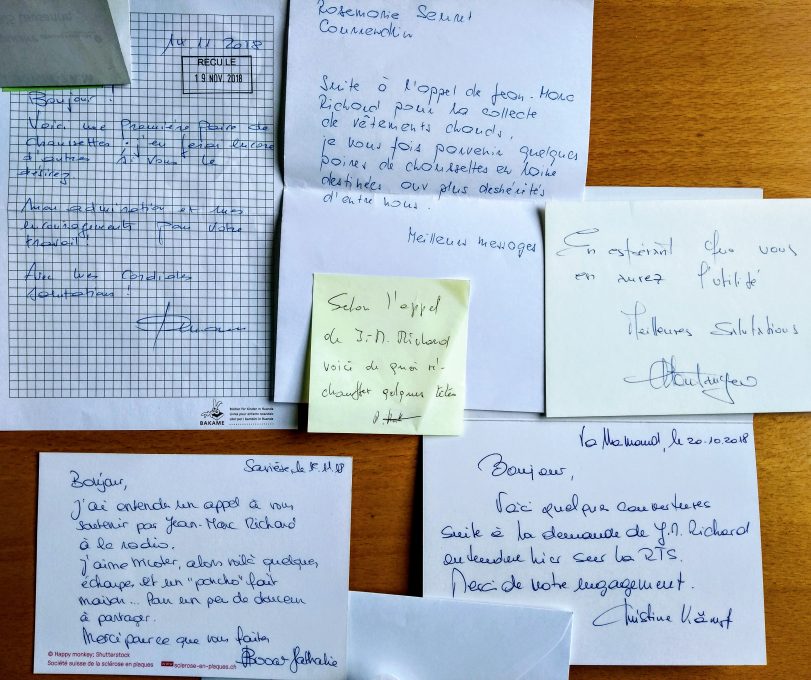 14 11 2018
RECU LE
19 NOV. 2018
Bonjour !
Voici une première paire de
chaussettes : j'en ferai encore
d'autres si vous le
désirez
Mon admiration et mes
encouragements pour votre
travail !
Avec mes cordiales
salutations !
BAKAME
Rosemarie
Suite à l'appel de Jean-Marc
Richard pour la collecte
de vêtements chauds,
je vous fais parvenir quelques
paires de chaussettes en laine
destinées aux plus deshérités
d'entre nous.
Meilleurs messages
Selon l'appel
de J.-M. Richard
voici de quoi ré-
chauffer quelques têtes
En espérant que vous
en aurez l'utilité
Meilleures salutations
Bonjour,
J'ai entendu un appel à vous
soutenir par Jean-Marc Richard
à la radio.
J'aime tricoter, alors voilà quelques
écharpes et un "poncho" fait
maison... Pour un peu de douceur
à partager.
Merci pour ce que vous faites
Nathalie
© Happy monkey; Shutterstock
Société suisse de la sclérose en plaques www.sclerose-en-plaques.ch
le 20.10.2018
Bonjour,
Voici quelques couvertures
suite à la demande de J.M. Richard
entendue hier sur la RTS.
Merci de votre engagement.
Christine